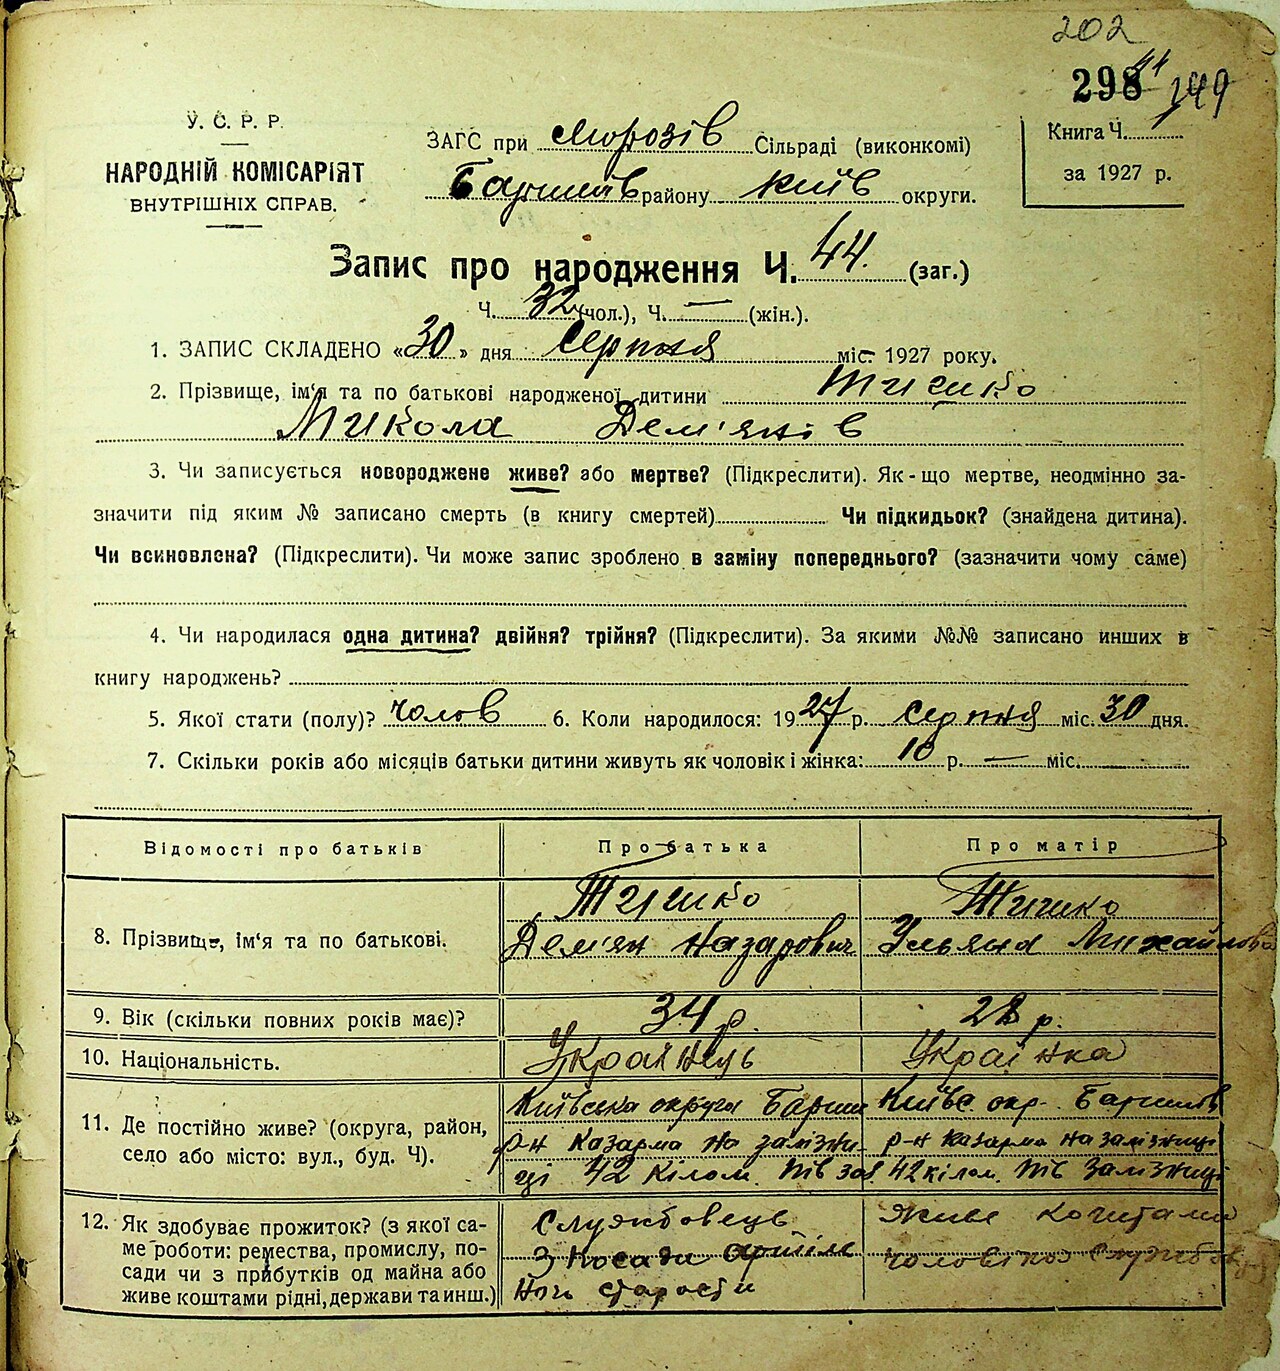 202
298 44 149
У. С. Р. Р.
НАРОДНІЙ КОМІСАРІЯТ
ВНУТРІШНІХ СПРАВ.
ЗАГС при Морозів Сільраді (виконкомі)
Баришів району Київ округи.
Книга Ч.
за 1927 р.
Запис про народження Ч. 44. (заг.)
Ч. 32 (чол.), Ч. — (жін.).
1. ЗАПИС СКЛАДЕНО «30» дня Серпня міс. 1927 року.
2. Прізвище, ім'я та по батькові народженої дитини Тишко
Микола Дем'янів
3. Чи записується новороджене живе? або мертве? (Підкреслити). Як-що мертве, неодмінно за-
значити під яким № записано смерть (в книгу смертей) Чи підкидьок? (знайдена дитина).
Чи всиновлена? (Підкреслити). Чи може запис зроблено в заміну попереднього? (зазначити чому саме)
4. Чи народилася одна дитина? двійня? трійня? (Підкреслити). За якими №№ записано инших в
книгу народжень?
5. Якої стати (полу)? чолов 6. Коли народилося: 1927 р. серпня міс. 30 дня.
7. Скільки років або місяців батьки дитини живуть як чоловік і жінка: 10 р. — міс.
Відомості про батьків
Про батька
Про матір
8. Прізвище, ім'я та по батькові.
Тишко
Дем'ян Назарович
Тишко
Ульяна Михайлова
9. Вік (скільки повних років має)?
34 р.
28 р.
10. Національність.
Українець
Українка
11. Де постійно живе? (округа, район,
село або місто: вул., буд. Ч).
Київська округа Бариш
р-н Казарма на залізни-
ці 42 кілом. Пів зал.
Київс. окр. Баришів
р-н Казарма на залізниці
42 кілом. Пів Залізниці
12. Як здобуває прожиток? (з якої са-
ме роботи: ремества, промислу, по-
сади чи з прибутків од майна або
живе коштами рідні, держави та инш.)
Службовець
з посади артіль
ного старости
Живе коштами
чоловіка службовця